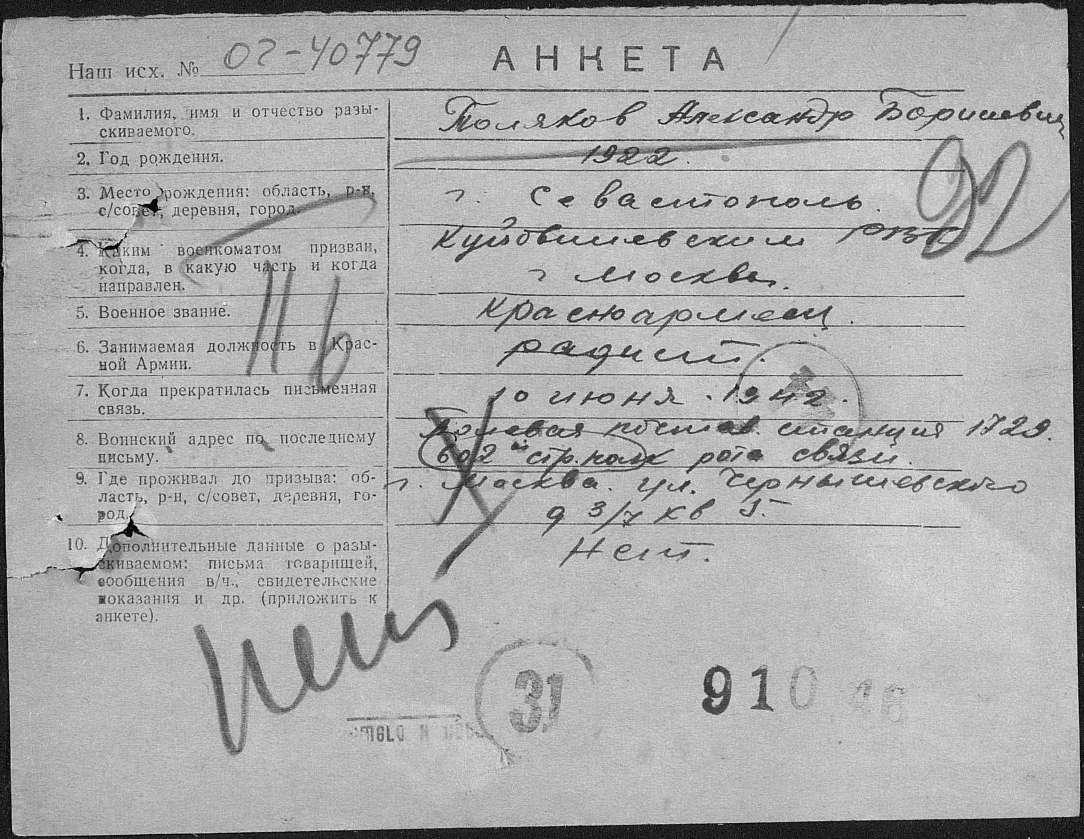 Наш исх. № 02-40779 АНКЕТА
1. Фамилия, имя и отчество разы-
скиваемого.
Поляков Александр Борисович
2. Год рождения.
1922.
3. Место рождения: область, р-н,
с/совет, деревня, город.
г. Севастополь.
4. Каким военкоматом призван,
когда, в какую часть и когда
направлен.
Куйбышевским РВК
г Москвы.
5. Военное звание.
Красноармеец.
6. Занимаемая должность в Крас-
ной Армии.
радист.
7. Когда прекратилась письменная
связь.
10 июня. 1942.
8. Воинский адрес по последнему
письму.
Полевая почтов. станция 1729.
602 й стр. полк рота связи.
9. Где проживал до призыва: об-
ласть, р-н, с/совет, деревня, го-
род.
г. Москва. ул. Чернышевского
д 3/7 кв 5.
10. Дополнительные данные о разы-
скиваемом: письма товарищей,
сообщения в/ч., свидетельские
показания и др. (приложить к
анкете).
Нет.
92
116
31
910